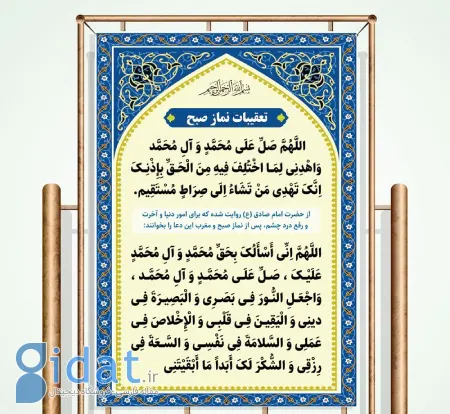 بسم الله الرحمن الرحیم
تعقیبات نماز صبح
اللَّهُمَّ صَلِّ عَلَى مُحَمَّدٍ وَ آلِ مُحَمَّد
وَاهْدِنِی لِمَا اخْتُلِفَ فِیهِ مِنَ الْحَقِّ بِإِذْنِکَ
اِنَّکَ تَهْدِی مَنْ تَشَاءُ اِلَى صِرَاطٍ مُسْتَقِیمٍ.
از حضرت امام صادق (ع) روایت شده که برای امور دنیا و آخرت
و رفع درد چشم، پس از نماز صبح و مغرب این دعا را بخوانند:
اللَّهُمَّ اِنِّی أَسْأَلُکَ بِحَقِّ مُحَمَّدٍ وَ آلِ مُحَمَّدٍ
عَلَیْکَ ، صَلِّ عَلَى مُحَمَّدٍ وَ آلِ مُحَمَّدٍ ،
وَاجْعَلِ النُّورَ فِی بَصَرِی وَ الْبَصِیرَةَ فِی
دِینِی وَ الْیَقِینَ فِی قَلْبِی وَ الْإِخْلاصَ فِی
عَمَلِی وَ السَّلامَةَ فِی نَفْسِی وَ السَّعَةَ فِی
رِزْقِی وَ الشُّکْرَ لَکَ أَبَداً مَا أَبْقَیْتَنِی
gidat.ir